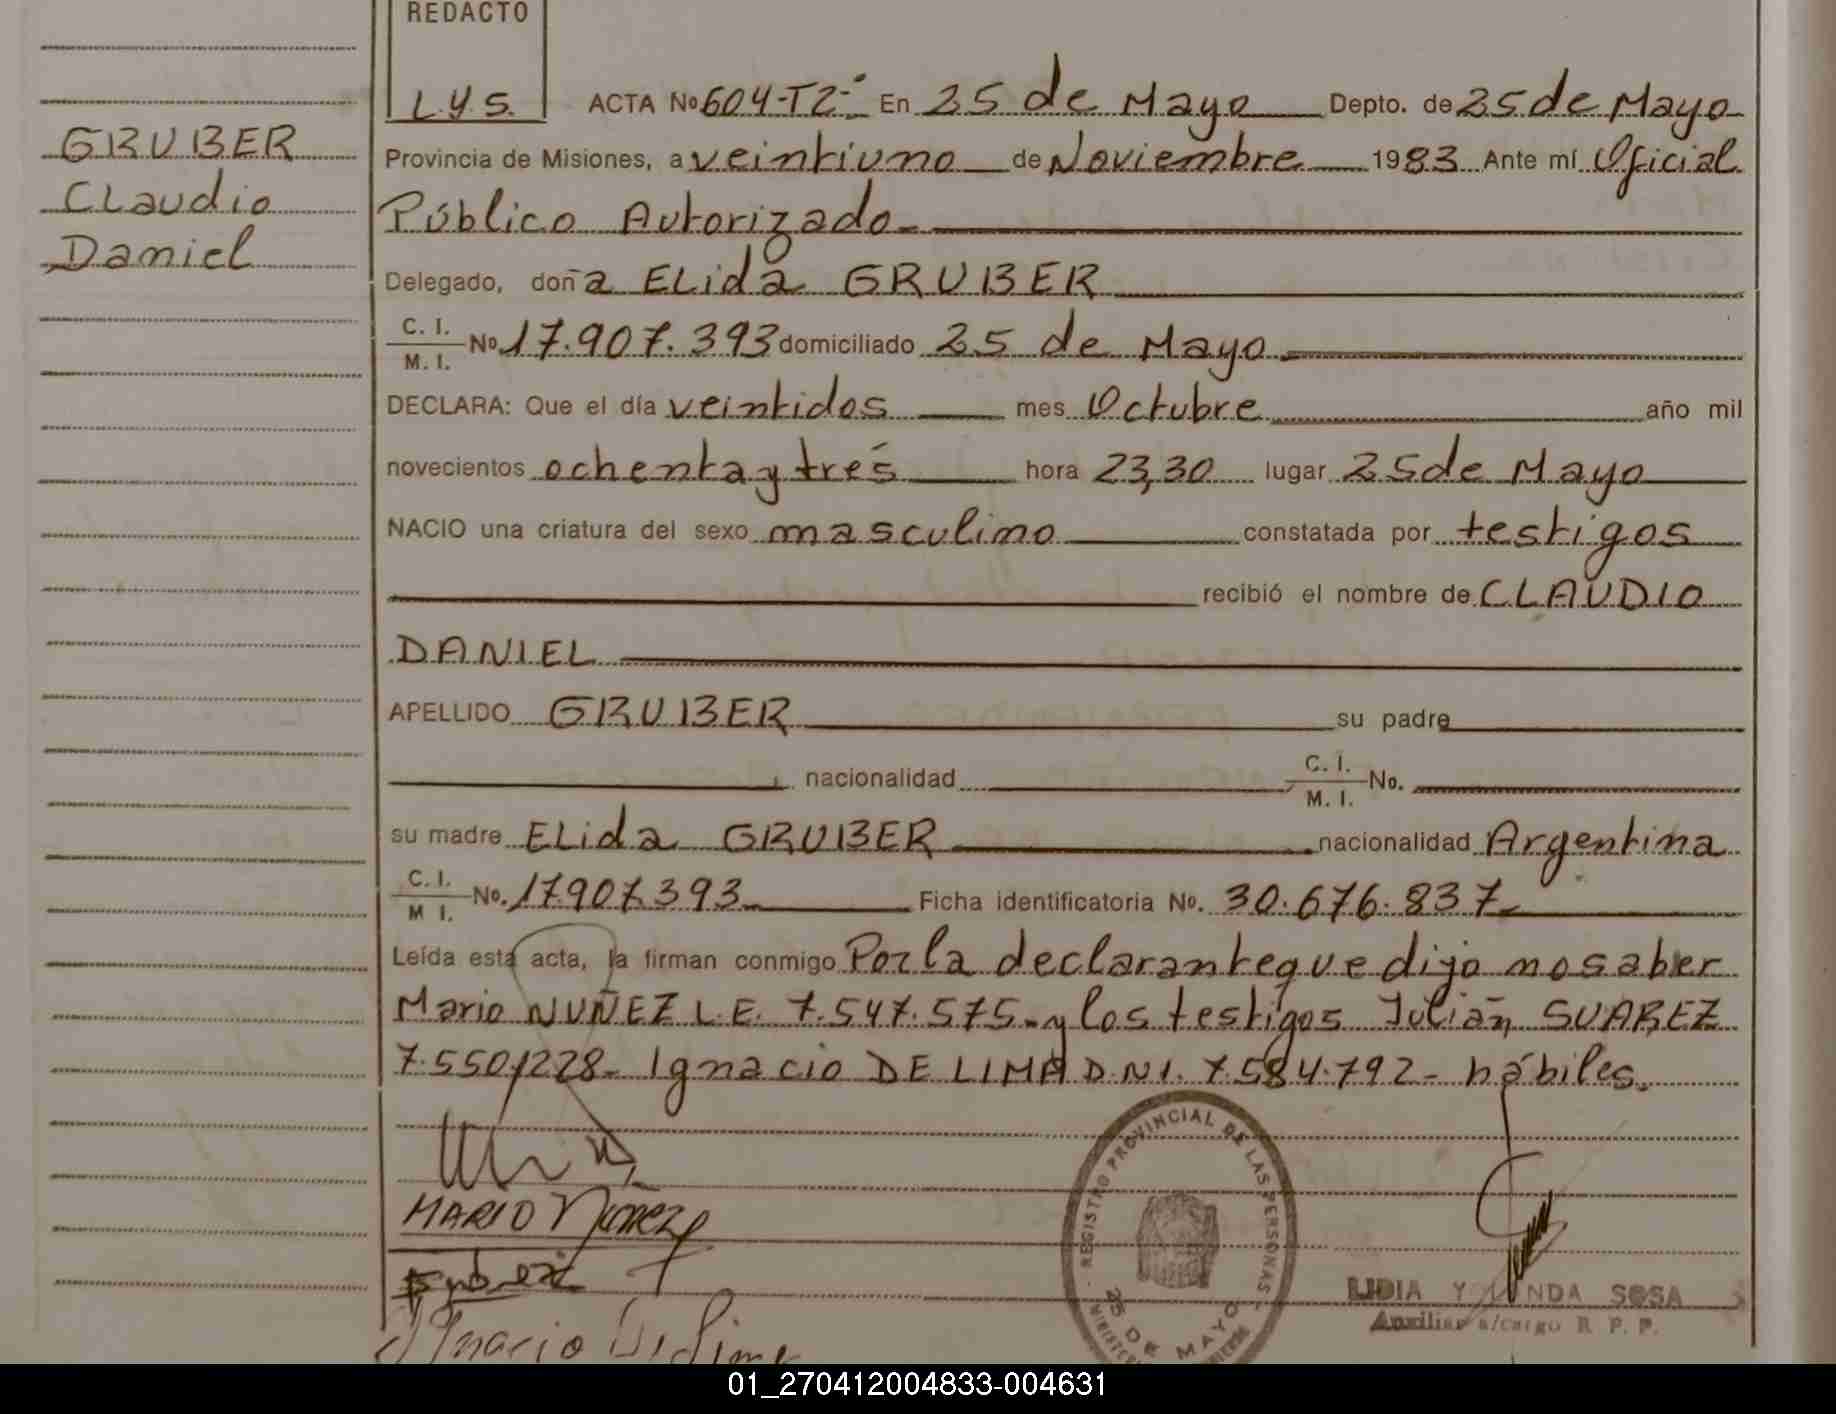 REDACTO
L.Y.S.
GRUBER
Claudio
Daniel
ACTA Nº 604-T2- En 25 de Mayo Depto. de 25 de Mayo
Provincia de Misiones, a veintiuno de Noviembre 1983 Ante mí Oficial
Público Autorizado
Delegado, doña ELida GRUBER
C. I. / M. I. Nº 17.907.393 domiciliado 25 de Mayo
DECLARA: Que el día veintidos mes Octubre año mil
novecientos ochenta y tres hora 23,30 lugar 25 de Mayo
NACIO una criatura del sexo masculino constatada por testigos
recibió el nombre de CLAUDIO
DANIEL
APELLIDO GRUBER su padre
nacionalidad C. I. / M. I. No.
su madre ELida GRUBER nacionalidad Argentina
C. I. / M I. No. 17.907.393 Ficha identificatoria Nº. 30.676.837
Leída esta acta, la firman conmigo Por la declarante que dijo no saber
Mario NUÑEZ L.E. 7.547.575- y los testigos Julián SUAREZ
7.550.228- Ignacio DE LIMA D.N.I. 7.584.792- hábiles.
MARIO Nuñez
REGISTRO PROVINCIAL DE LAS PERSONAS
25 DE MAYO
LIDIA Y NDA SOSA
Auxiliar a/cargo R. P. P.
Ignacio De Lima
01_270412004833-004631